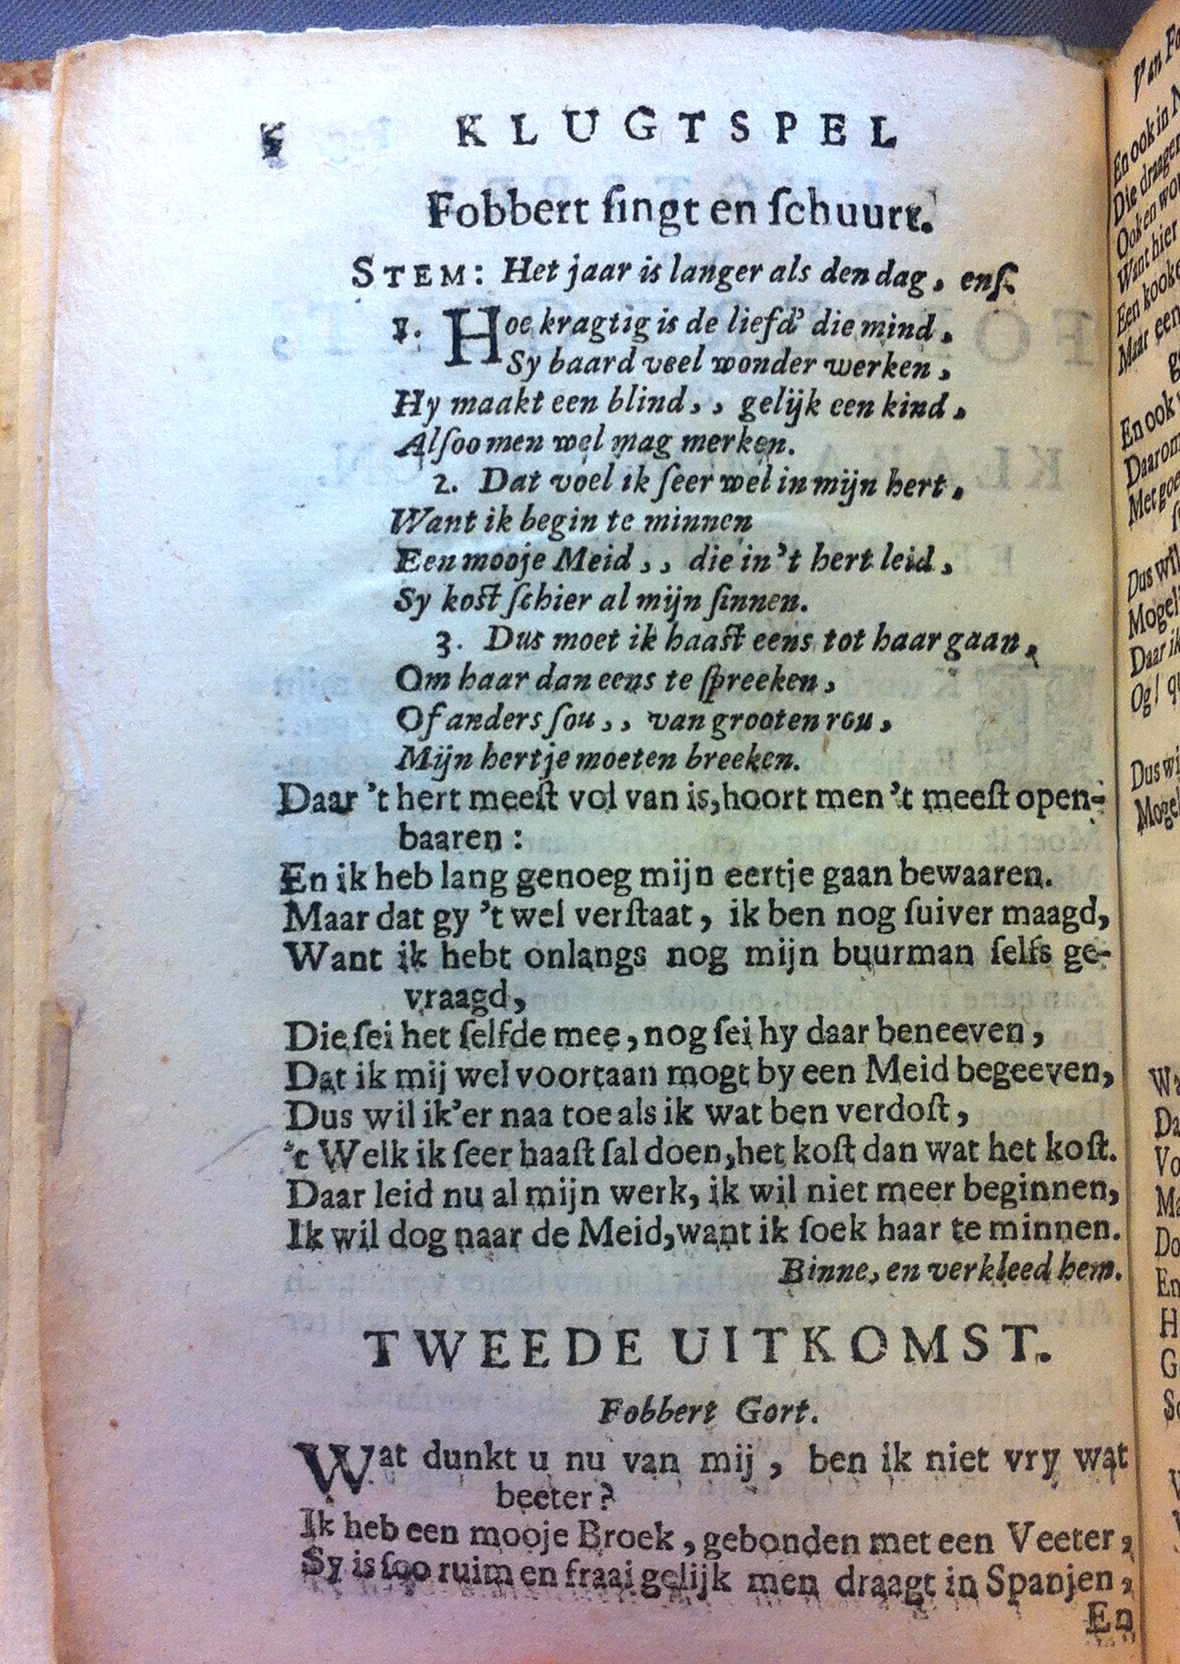 KLUGTSPEL
Fobbert ſingt en ſchuurt.
STEM: Het jaar is langer als den dag, enſ.
1. Hoe kragtig is de liefd' die mind,
Sy baard veel wonder werken,
Hy maakt een blind,, gelijk een kind,
Alſoo men wel mag merken.
2. Dat voel ik ſeer wel in mijn hert,
Want ik begin te minnen
Een mooje Meid,, die in 't hert leid,
Sy koſt ſchier al mijn ſinnen.
3. Dus moet ik haaſt eens tot haar gaan,
Om haar dan eens te ſpreeken,
Of anders ſou,, van grooten rou,
Mijn hertje moeten breeken.
Daar 't hert meeſt vol van is, hoort men 't meeſt open-
baaren:
En ik heb lang genoeg mijn eertje gaan bewaaren.
Maar dat gy 't wel verſtaat, ik ben nog ſuiver maagd,
Want ik hebt onlangs nog mijn buurman ſelfs ge-
vraagd,
Die ſei het ſelfde mee, nog ſei hy daar beneeven,
Dat ik mij wel voortaan mogt by een Meid begeeven,
Dus wil ik'er naa toe als ik wat ben verdoſt,
't Welk ik ſeer haaſt ſal doen, het koſt dan wat het koſt.
Daar leid nu al mijn werk, ik wil niet meer beginnen,
Ik wil dog naar de Meid, want ik ſoek haar te minnen.
Binne, en verkleed hem.
TWEEDE UITKOMST.
Fobbert Gort.
Wat dunkt u nu van mij, ben ik niet vry wat
beeter?
Ik heb een mooje Broek, gebonden met een Veeter,
Sy is ſoo ruim en fraai gelijk men draagt in Spanjen,
En
Van
En ook in
Die draagen
Ook en
Want hier
Een kooke
Maar een
En ook
Daarom
Met goe
Dus wil
Mogel
Daar ik
Og!
Dus wi
Mogel